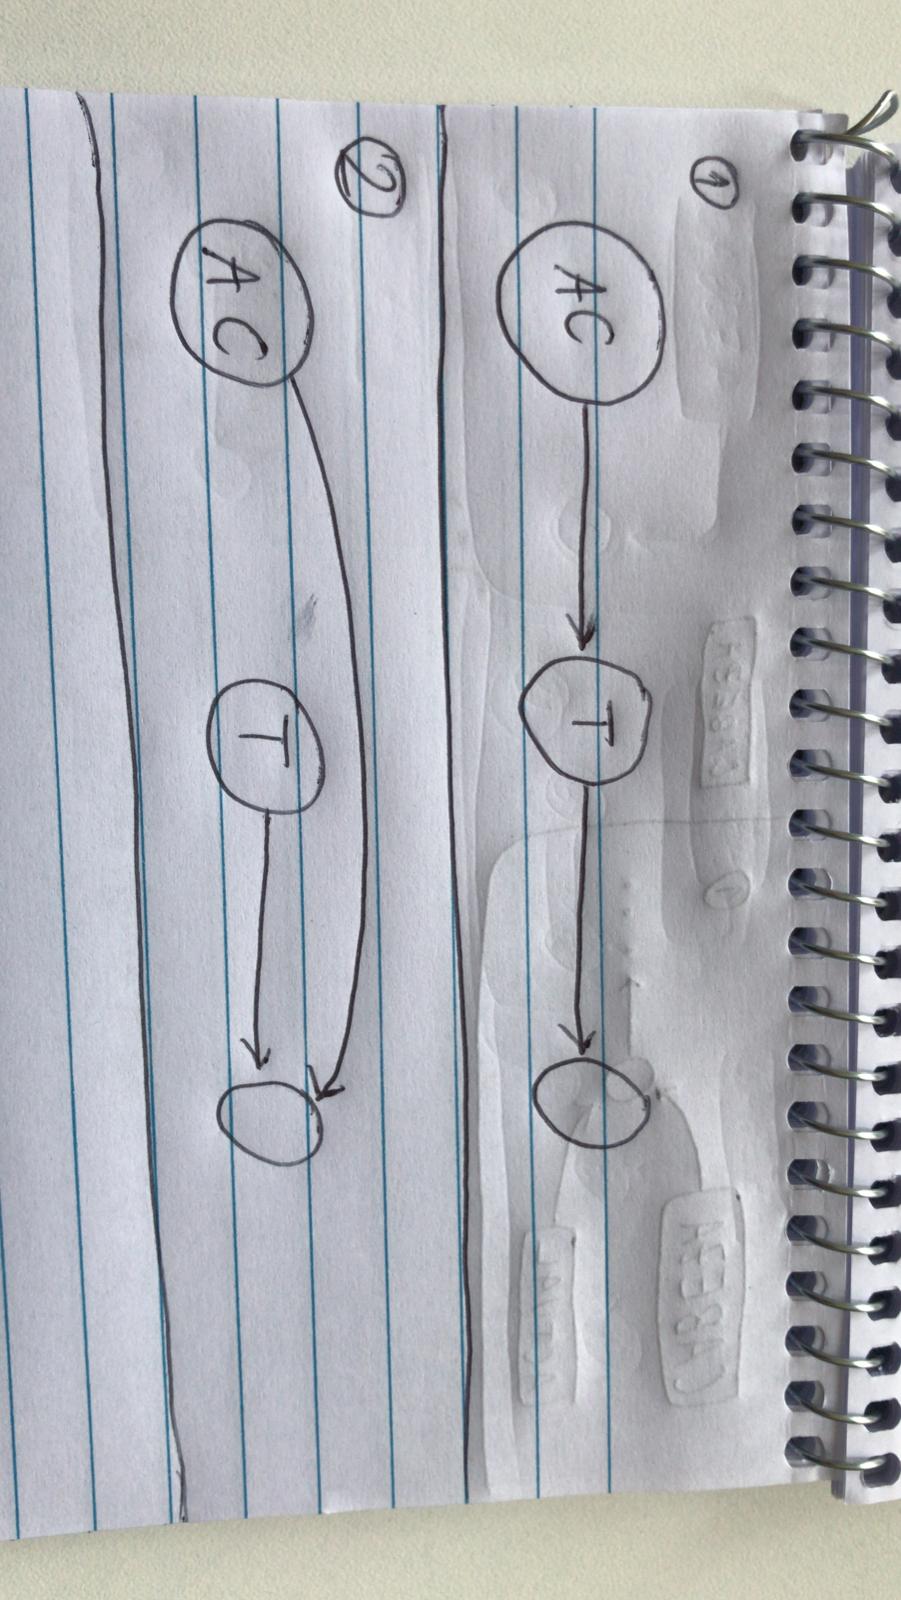 ①
AC
T
②
AC
T